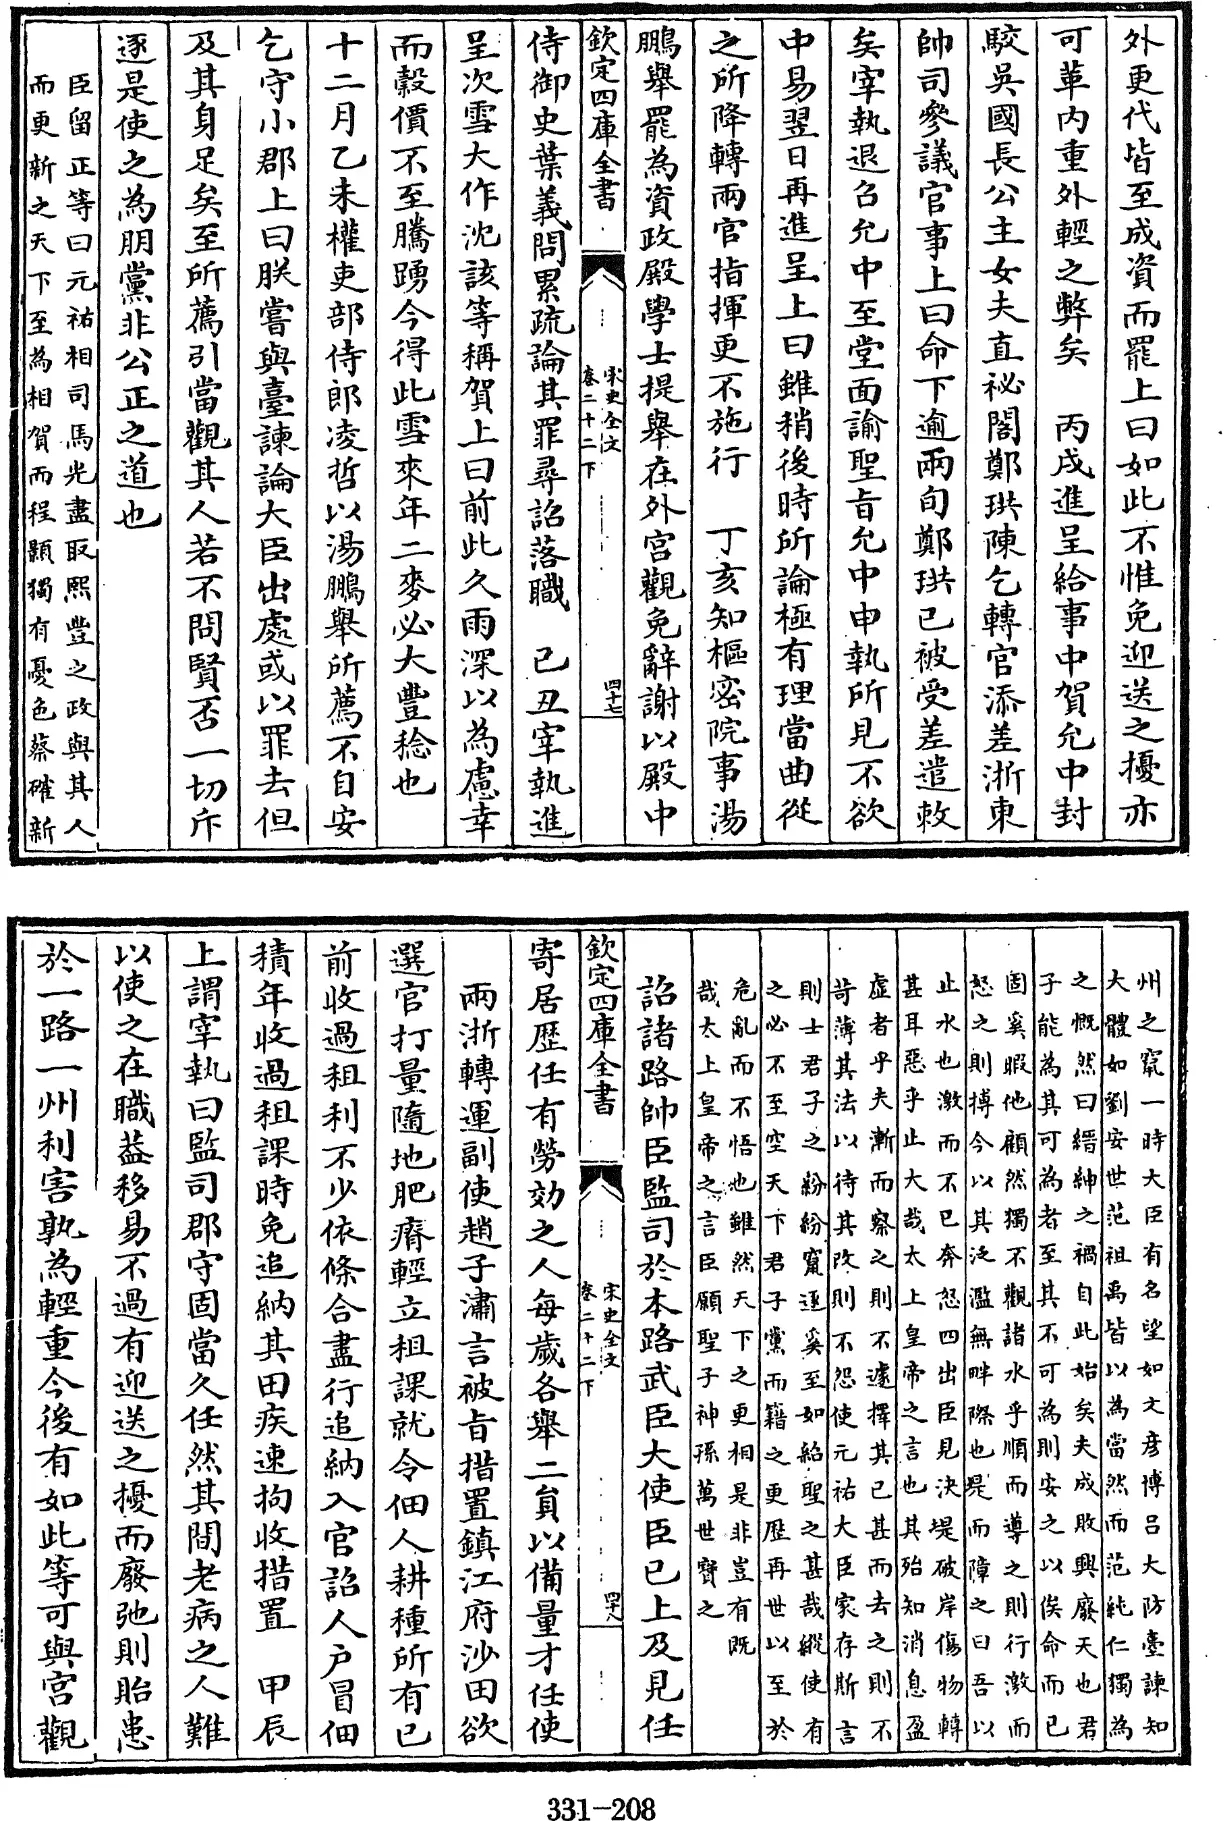 外更代皆至成資而罷上曰如此不惟免迎送之擾亦
可革内重外輕之弊矣　丙戌進呈給事中賀允中封
駮吳國長公主女夫直祕閣鄭珙陳乞轉官添差浙東
帥司參議官事上曰命下逾兩旬鄭珙已被受差遣敕
矣宰執退召允中至堂面諭聖旨允中申執所見不欲
中易翌日再進呈上曰雖稍後時所論極有理當曲從
之所降轉兩官指揮更不施行　丁亥知樞密院事湯
鵬舉罷為資政殿學士提舉在外宮觀免辭謝以殿中
欽定四庫全書　宋史全文　卷二十二下　四十七
侍御史葉義問累疏論其罪尋詔落職　己丑宰執進
呈次雪大作沈該等稱賀上曰前此久雨深以為慮幸
而穀價不至騰踴今得此雪來年二麥必大豐稔也
十二月乙未權吏部侍郎凌哲以湯鵬舉所薦不自安
乞守小郡上曰朕嘗與臺諫論大臣出處或以罪去但
及其身足矣至所薦引當觀其人若不問賢否一切斥
逐是使之為朋黨非公正之道也
臣留正等曰元祐相司馬光盡取熙豐之政與其人
而更新之天下至為相賀而程顥獨有憂色蔡確新
州之竄一時大臣有名望如文彦博吕大防臺諫知
大體如劉安世范祖禹皆以為當然而范純仁獨為
之慨然曰縉紳之禍自此始矣夫成敗興廢天也君
子能為其可為者至其不可為則安之以俟命而已
固奚暇他顧然獨不觀諸水乎順而導之則行激而
怒之則搏今以其泛濫無畔際也堤而障之曰吾以
止水也激而不已奔怒四出臣見決堤破岸傷物轉
甚耳惡乎止大哉太上皇帝之言也其殆知消息盈
虚者乎夫漸而察之則不遽擇其已甚而去之則不
苛薄其法以待其改則不怨使元祐大臣家存斯言
則士君子之紛紛竄逐奚至如紹聖之甚哉縱使有
之必不至空天下君子黨而籍之更歷再世以至於
危亂而不悟也雖然天下之更相是非豈有既
哉太上皇帝之言臣願聖子神孫萬世寶之
詔諸路帥臣監司於本路武臣大使臣已上及見任
欽定四庫全書　宋史全文　卷二十二下　四十八
寄居歷任有勞効之人每歲各舉二員以備量才任使
兩浙轉運副使趙子潚言被旨措置鎮江府沙田欲
選官打量隨地肥瘠輕立租課就令佃人耕種所有已
前收過租利不少依條合盡行追納入官詔人户冒佃
積年收過租課時免追納其田疾速拘收措置　甲辰
上謂宰執曰監司郡守固當久任然其間老病之人難
以使之在職葢移易不過有迎送之擾而廢弛則貽患
於一路一州利害孰為輕重今後有如此等可與宮觀
331-208